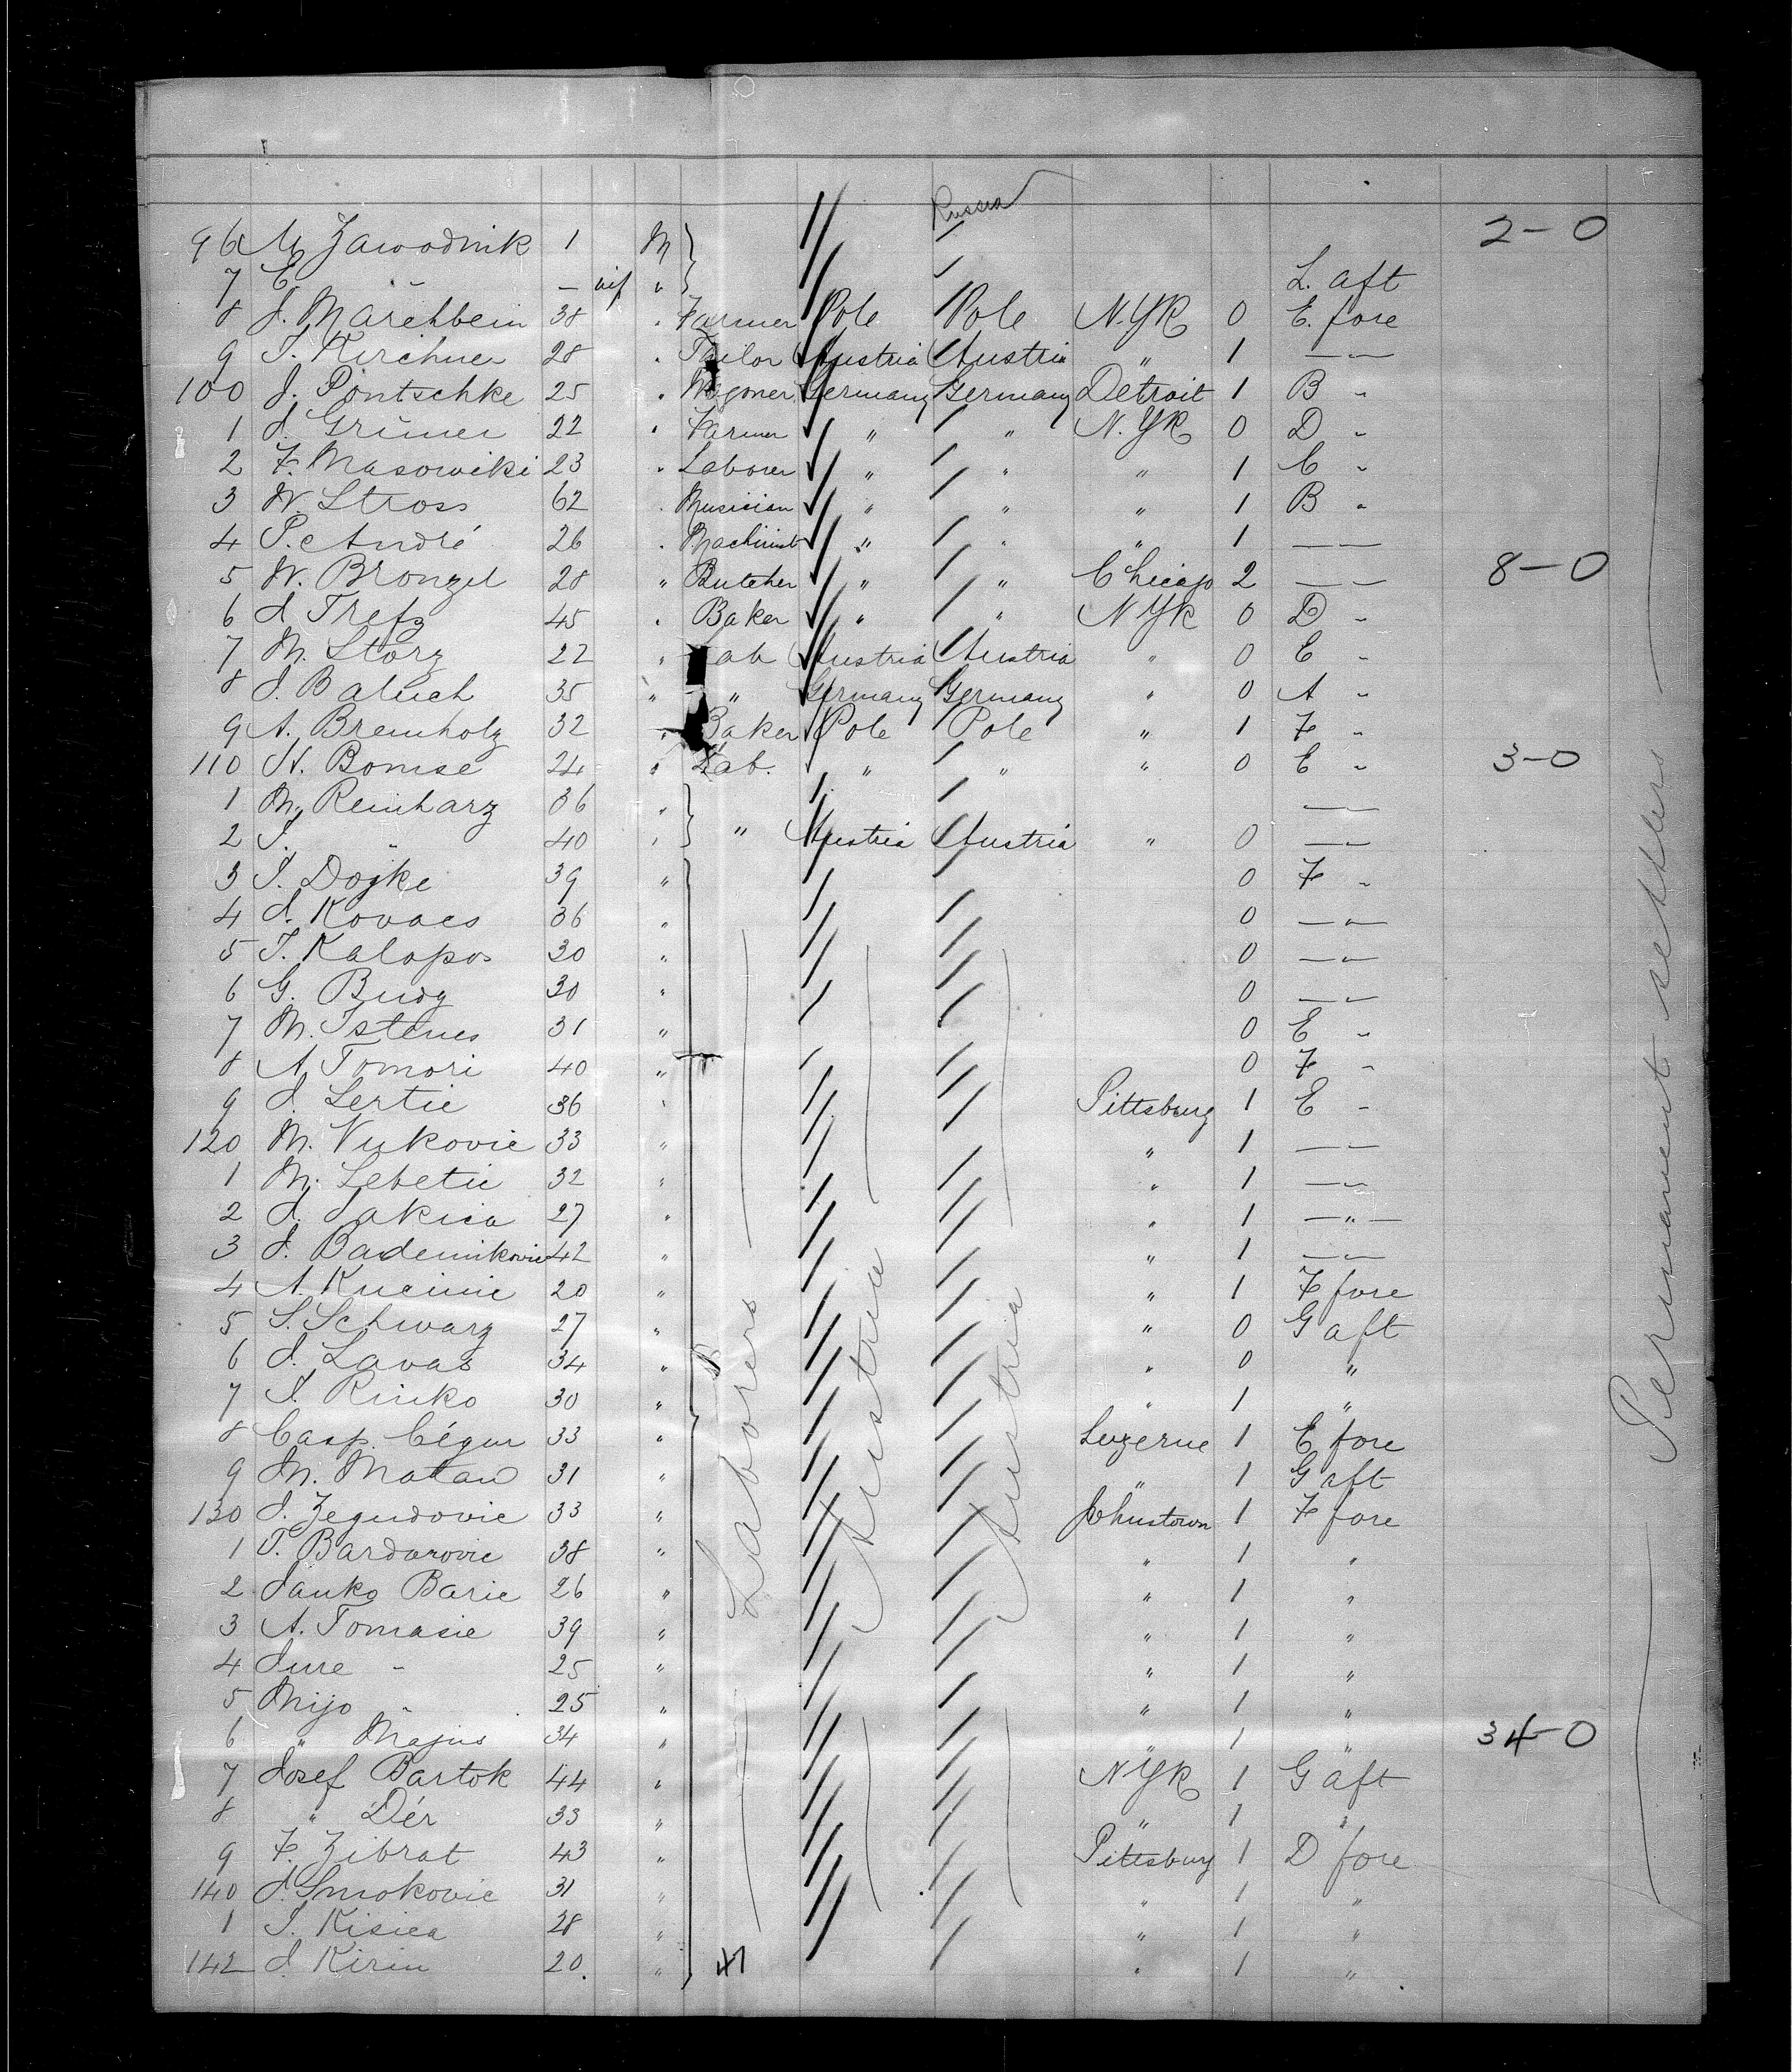 Russia
96 M Zawodnik 1 M 2-0
7 E " — inf " L. aft
8 J. Marchbein 38 " Farmer Pole Pole N.Yk 0 E. fore
9 S. Kirchner 28 " Tailor Austria Austria " 1 — " —
100 J. Pontschke 25 " Wagoner Germany Germany Detroit 1 B "
1 J. Grüner 22 " Farmer " " N.Yk 0 D "
2 F. Masowiki 23 " Laborer " " " 1 C "
3 W. Stross 62 " Musician " " " 1 B "
4 P. André 26 " Machinist " " " 1 — —
5 W. Bronzel 28 " Butcher " " Chicago 2 — " — 8-0
6 J Trefz 45 " Baker " " N Yk 0 D "
7 M. Storz 22 " Lab Austria Austria " 0 E "
8 J. Baluch 35 " " Germany Germany " 0 A "
9 A. Bremholz 32 " Baker Pole Pole " 1 F "
110 H. Bomse 24 " Lab. " " " 0 E " 3-0
1 M. Reinharz 36 " — —
2 S. " 40 " " Austria Austria " 0 — " —
3 S. Dojke 39 " 0 F "
4 J. Kovacs 36 " 0 — " —
5 S. Kalapos 30 " 0 — " —
6 G. 30 " 0 — " —
7 M. Istenes 31 " 0 E "
8 A Tomori 40 " 0 F "
9 J. Sertic 36 " Pittsburg 1 E "
120 M. Vukovic 33 " " 1 — " —
1 M. Lebetic 32 " " 1 — " —
2 J. Jakica 27 " " 1 — " —
3 J. 42 " " 1 — " —
4 A. Kucinic 20 " " 1 F fore
5 S. Schwarz 27 " " 0 G aft
6 J. Lavas 34 " " 0 "
7 J. Rinko 30 " " 1 "
8 Casp. 33 " Luzerne 1 E fore
9 M. Matan 31 " " 1 G aft
130 J. Zegudovic 33 " Johnstown 1 F fore
1 T. Bardarovic 38 " " 1 "
2 Janko Baric 26 " " 1 "
3 A. Tomasic 39 " " 1 "
4 Jure " 25 " " 1 "
5 Mijo " 25 " " 1 "
6 " Majus 34 " " 1 " 34-0
7 Josef Bartok 44 " N Yk 1 G aft
8 " Dér 33 " " 1 "
9 F. Zibrat 43 " Pittsburg 1 D fore
140 J. Smokovic 31 " " 1 "
1 S. Kisica 28 " " 1 "
142 J. Kirin 20. " 47 " 1 "
Laborers
Austria
Austria
Permanent settlers